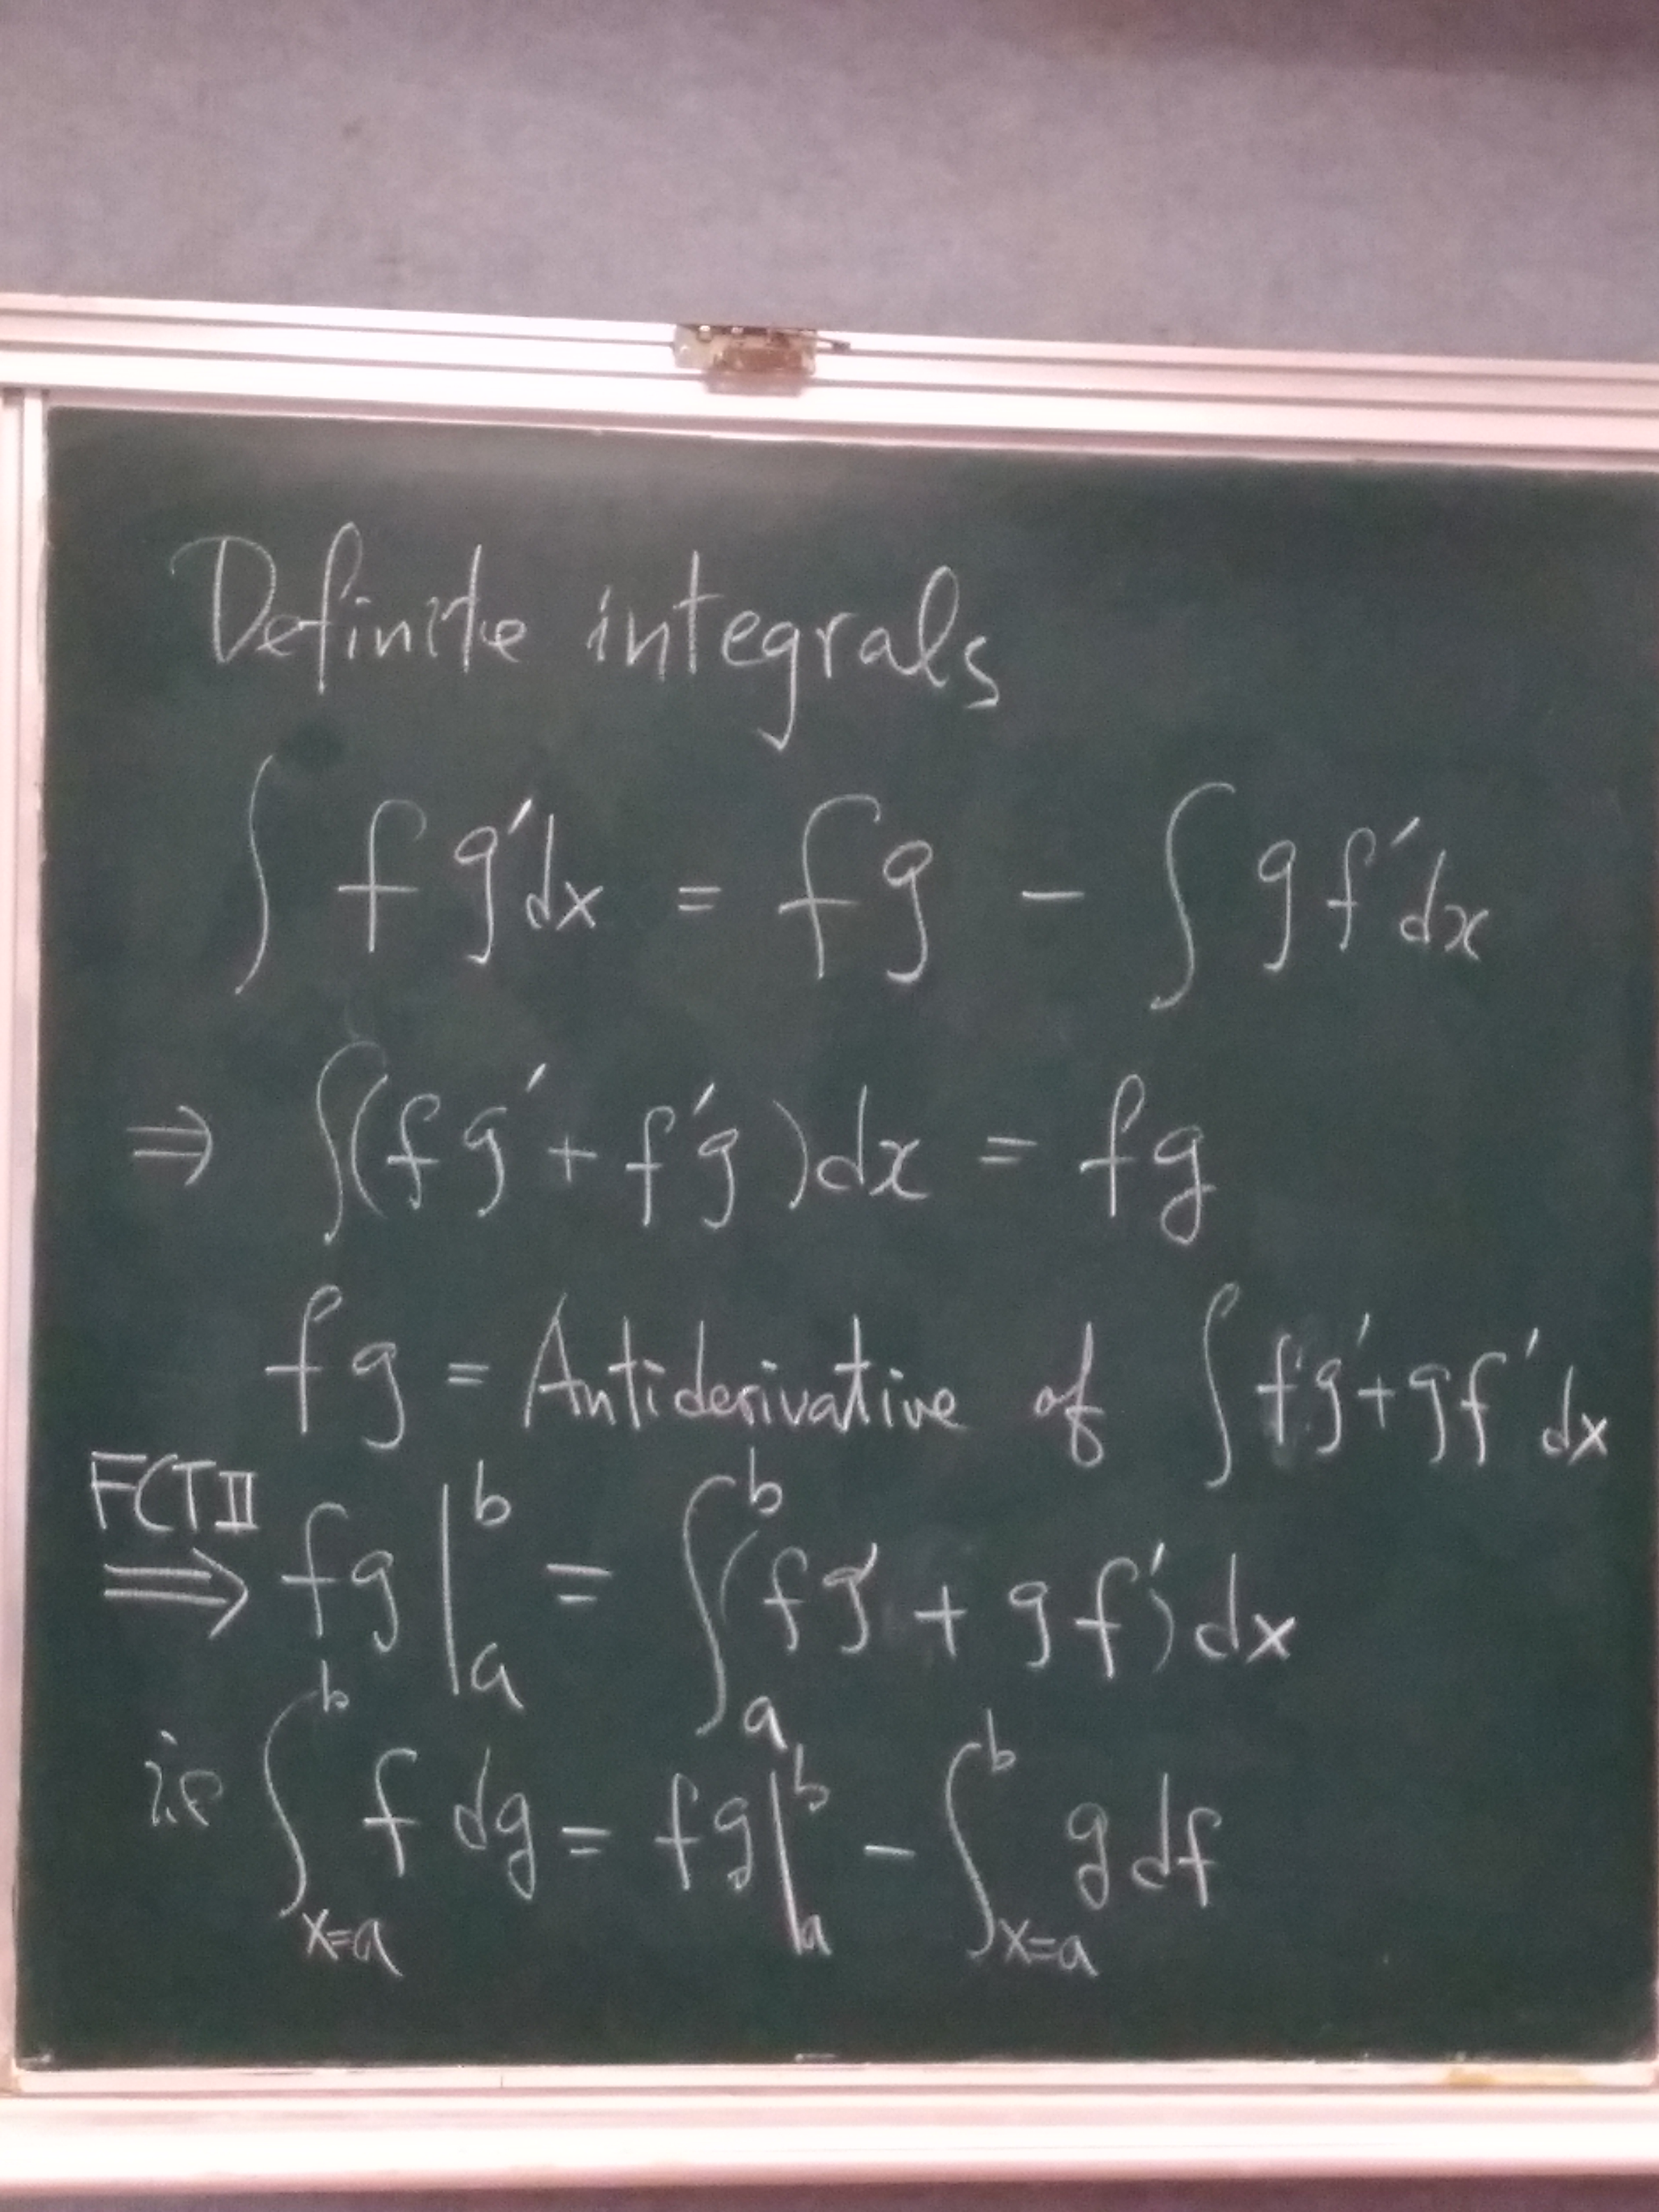 Definite integrals
∫ f g′dx = fg - ∫ g f′dx
⇒ ∫(fg′ + f′g)dx = fg
fg = Antiderivative of ∫ fg′+gf′dx
FCTII
⇒ fg|_a^b = ∫_a^b (fg′ + gf′)dx
ie ∫_{x=a}^b f dg = fg|_a^b - ∫_{x=a}^b g df